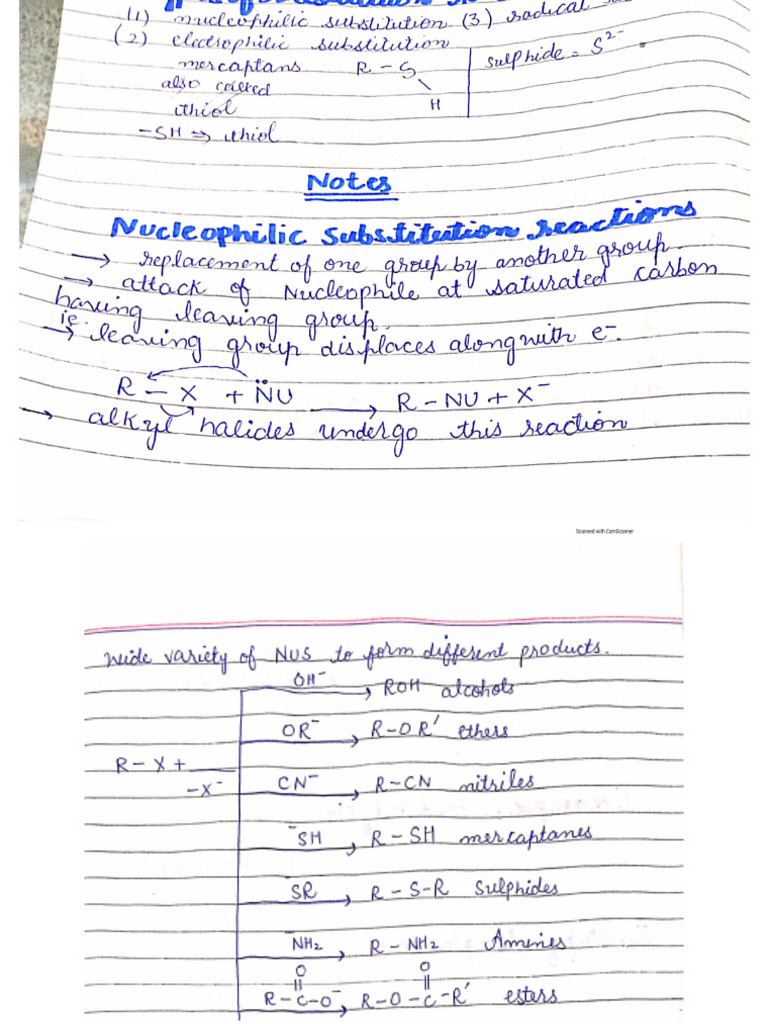 (1) nucleophilic substitution (3) radical
(2) electrophilic substitution
mercaptans R - S
also called
thiol H
-SH ⇒ thiol
sulphide = S²⁻
Notes
Nucleophilic Substitution reactions
→ replacement of one group by another group.
→ attack of Nucleophile at saturated carbon
having leaving group.
ie.
→ leaving group displaces along with e⁻.
R - X + N̈U → R - NU + X⁻
→ alkyl halides undergo this reaction
Scanned with CamScanner
wide variety of NUS to form different products.
OH⁻ → ROH alcohols
OR⁻ → R-OR' ethers
R - X +
-X⁻
CN⁻ → R-CN nitriles
⁻SH → R - SH mercaptanes
SR → R - S-R Sulphides
⁻NH₂ → R - NH₂ Amines
O O
|| ||
R-C-O⁻ → R-O-C-R' esters